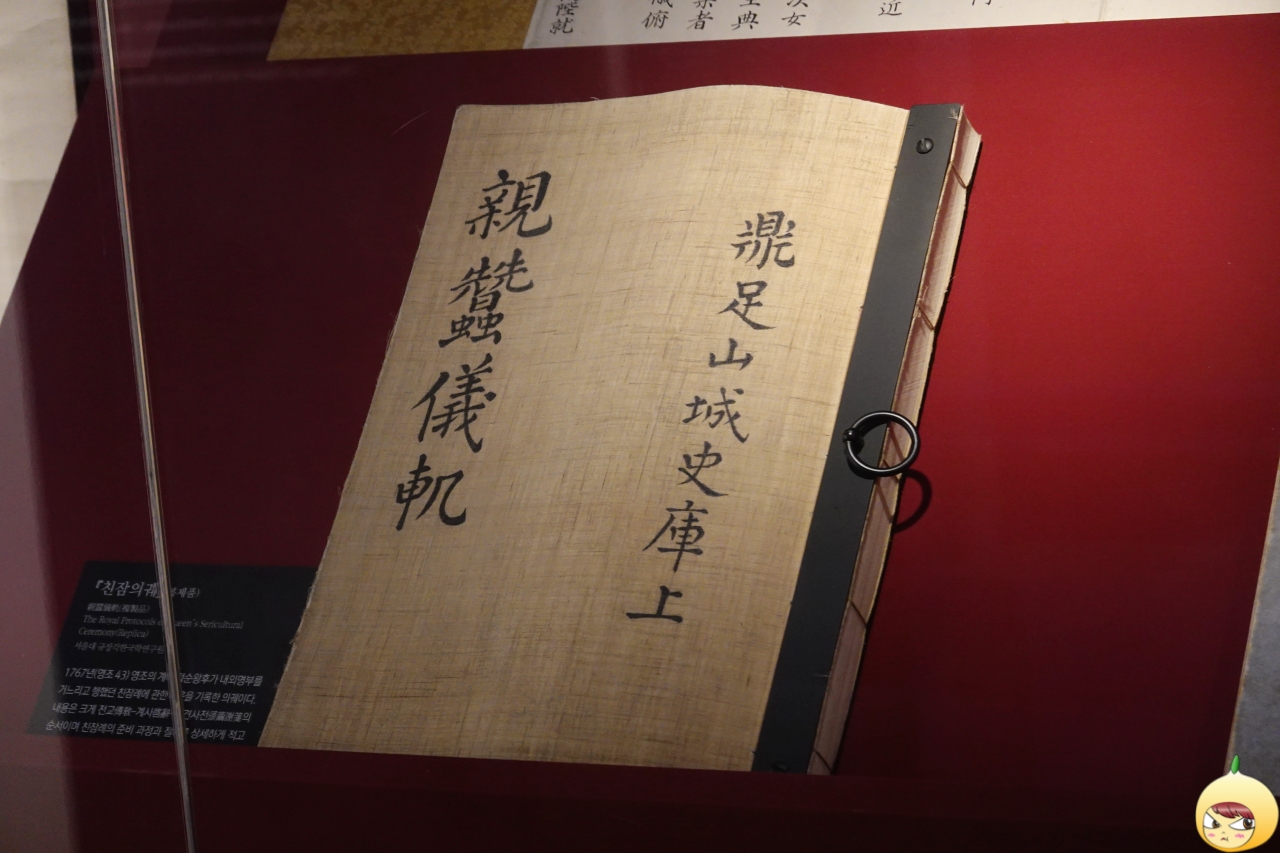 陞就
俯
者
典
女
近
鼎足山城史庫上
親蠶儀軌
『친잠의궤』
親蠶儀軌(複製品)
The Royal Protocols Queen's Sericultural
Ceremony(Replica)
서울대 규장각한국학연구원
1767년(영조 43) 영조의 순왕후가 내외명부를
거느리고 행했던 친잠례에 관한 기록한 의궤이다.
내용은 크게 전교傳敎-계사啓辭
순서이며 친잠례의 준비 과정과 상세하게 적고